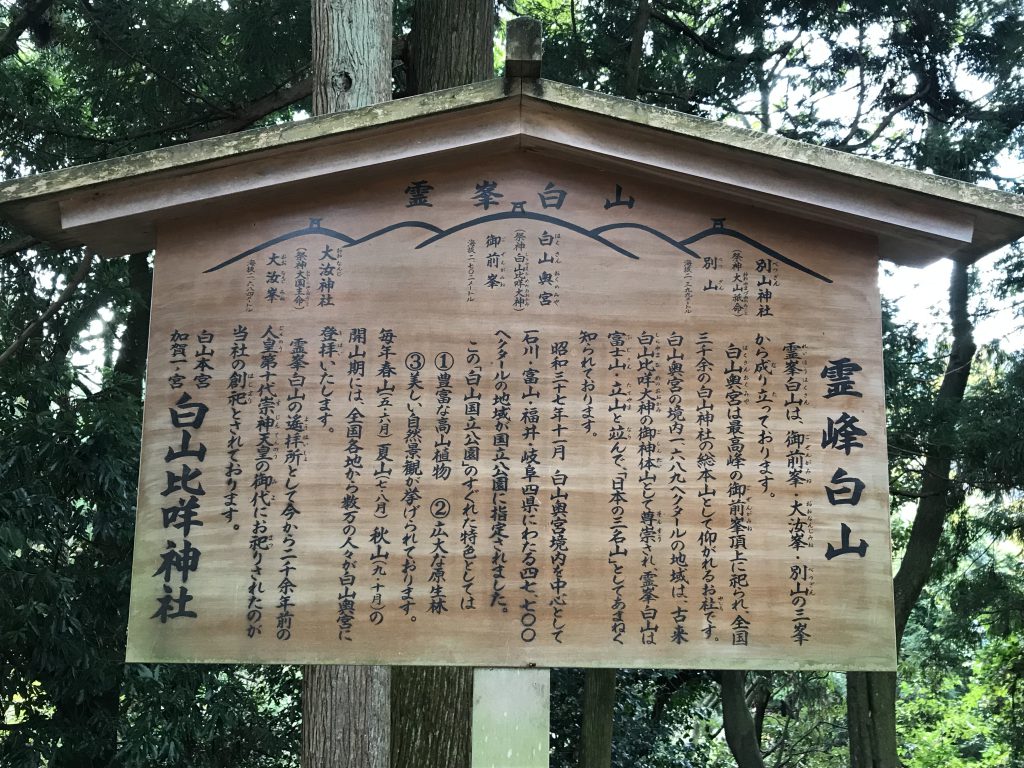 霊峯白山
別山神社
(祭神大山祇命)
別山
海抜二、三九九メートル
白山奥宮
(祭神白山比咩大神)
御前峯
海抜二、七〇二メートル
大汝神社
(祭神大国主命)
大汝峯
海抜二、六八四メートル
霊峰白山
霊峯白山は、御前峯・大汝峯・別山の三峯
から成り立っております。
白山奥宮は最高峰の御前峯頂上に祀られ、全国
三千余の白山神社の総本山として仰がれるお社です。
白山奥宮の境内一、六八九ヘクタールの地域は、古来
白山比咩大神の御神体山として尊崇され、霊峯白山は
富士山・立山と並んで、「日本の三名山」としてあまねく
知られております。
昭和三十七年十一月 白山奥宮境内を中心として
石川・富山・福井・岐阜四県にわたる四七、七〇〇
ヘクタールの地域が国立公園に指定されました。
この「白山国立公園」のすぐれた特色としては
①豊富な高山植物 ②広大な原生林
③美しい自然景観が挙げられております。
毎年春山(五・六月)夏山(七・八月)秋山(九・十月)の
開山期には、全国各地から数万の人々が白山奥宮に
登拝いたします。
霊峯白山の遙拝所として今から二千余年前の
人皇第十代崇神天皇の御代にお祀りされたのが
当社の創祀とされております。
白山本宮
加賀一ノ宮
白山比咩神社